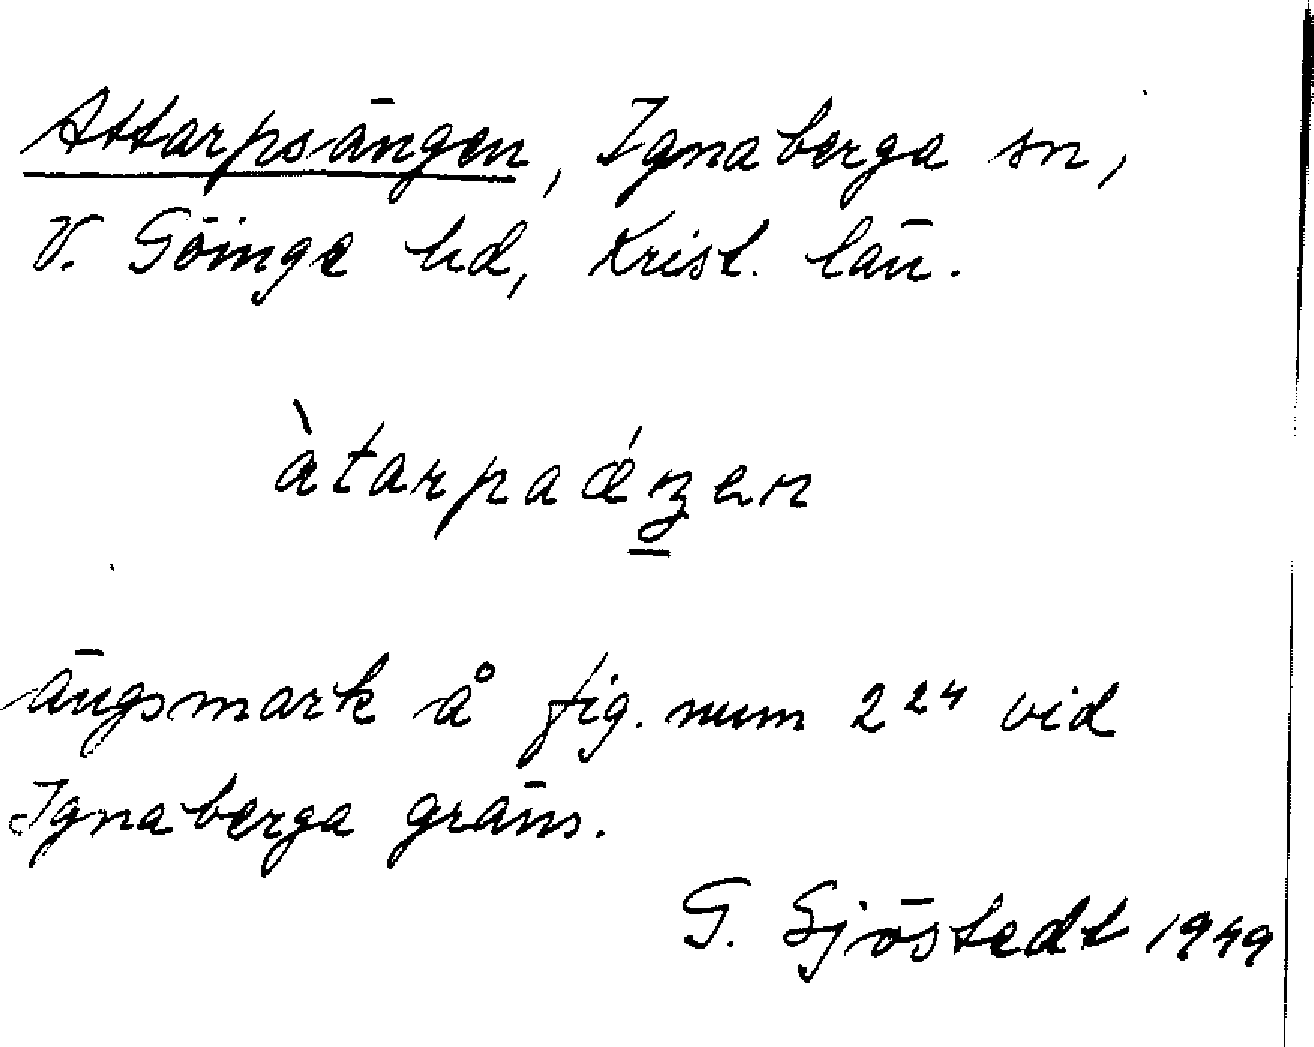 Attarpsängen, Ignaberga sn,
V. Göinge hd, Krist. län.
àtarpaǽŋen
ängsmark å fig. num 2²⁴ vid
Ignaberga gräns.
G. Sjöstedt 1949